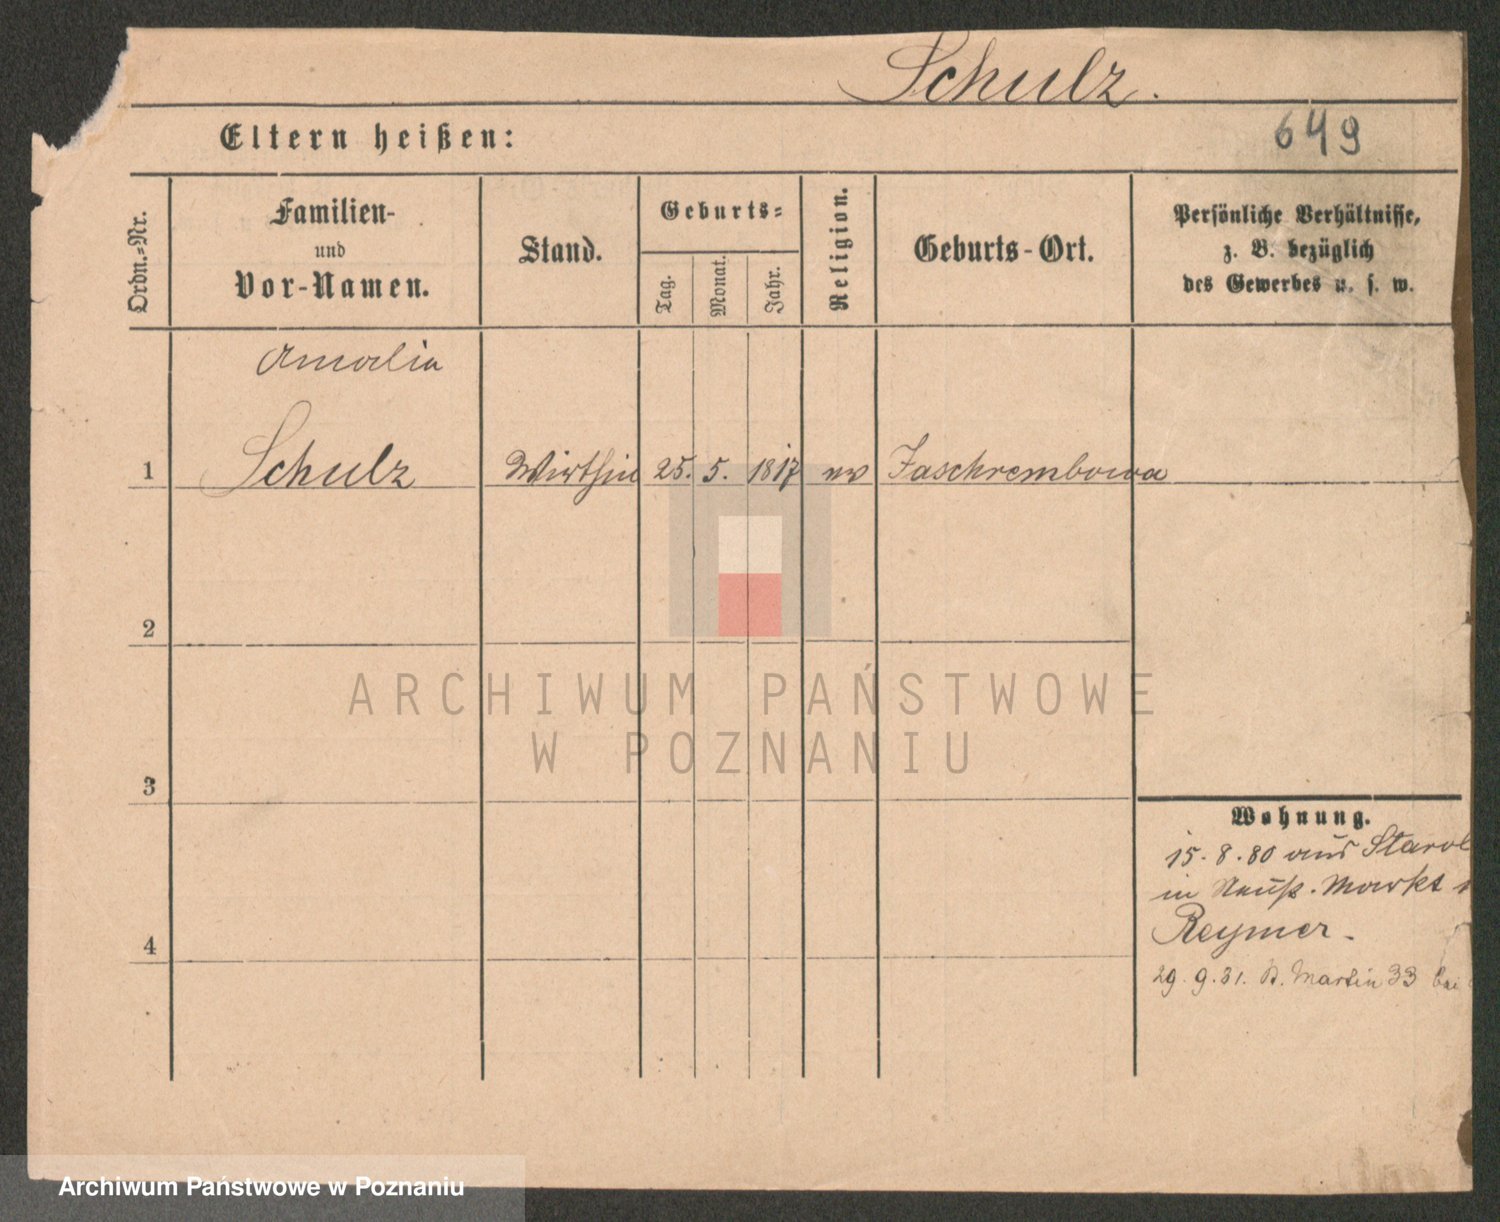 Schulz.
649
Eltern heißen:
Ordn.-Nr.
Familien-
und
Vor-Namen.
Stand.
Geburts-
Tag.
Monat.
Jahr.
Religion.
Geburts-Ort.
Persönliche Verhältnisse,
z. B. bezüglich
des Gewerbes u. s. w.
Amalia
1 Schulz Wirthin 25. 5. 1817 ev Jaschrembowa
2
3
4
Wohnung.
15. 8. 80 aus Starol
in Markt
Reymer.
29. 9. 81. St. Martin 33 bei
ARCHIWUM PAŃSTWOWE
W POZNANIU
Archiwum Państwowe w Poznaniu